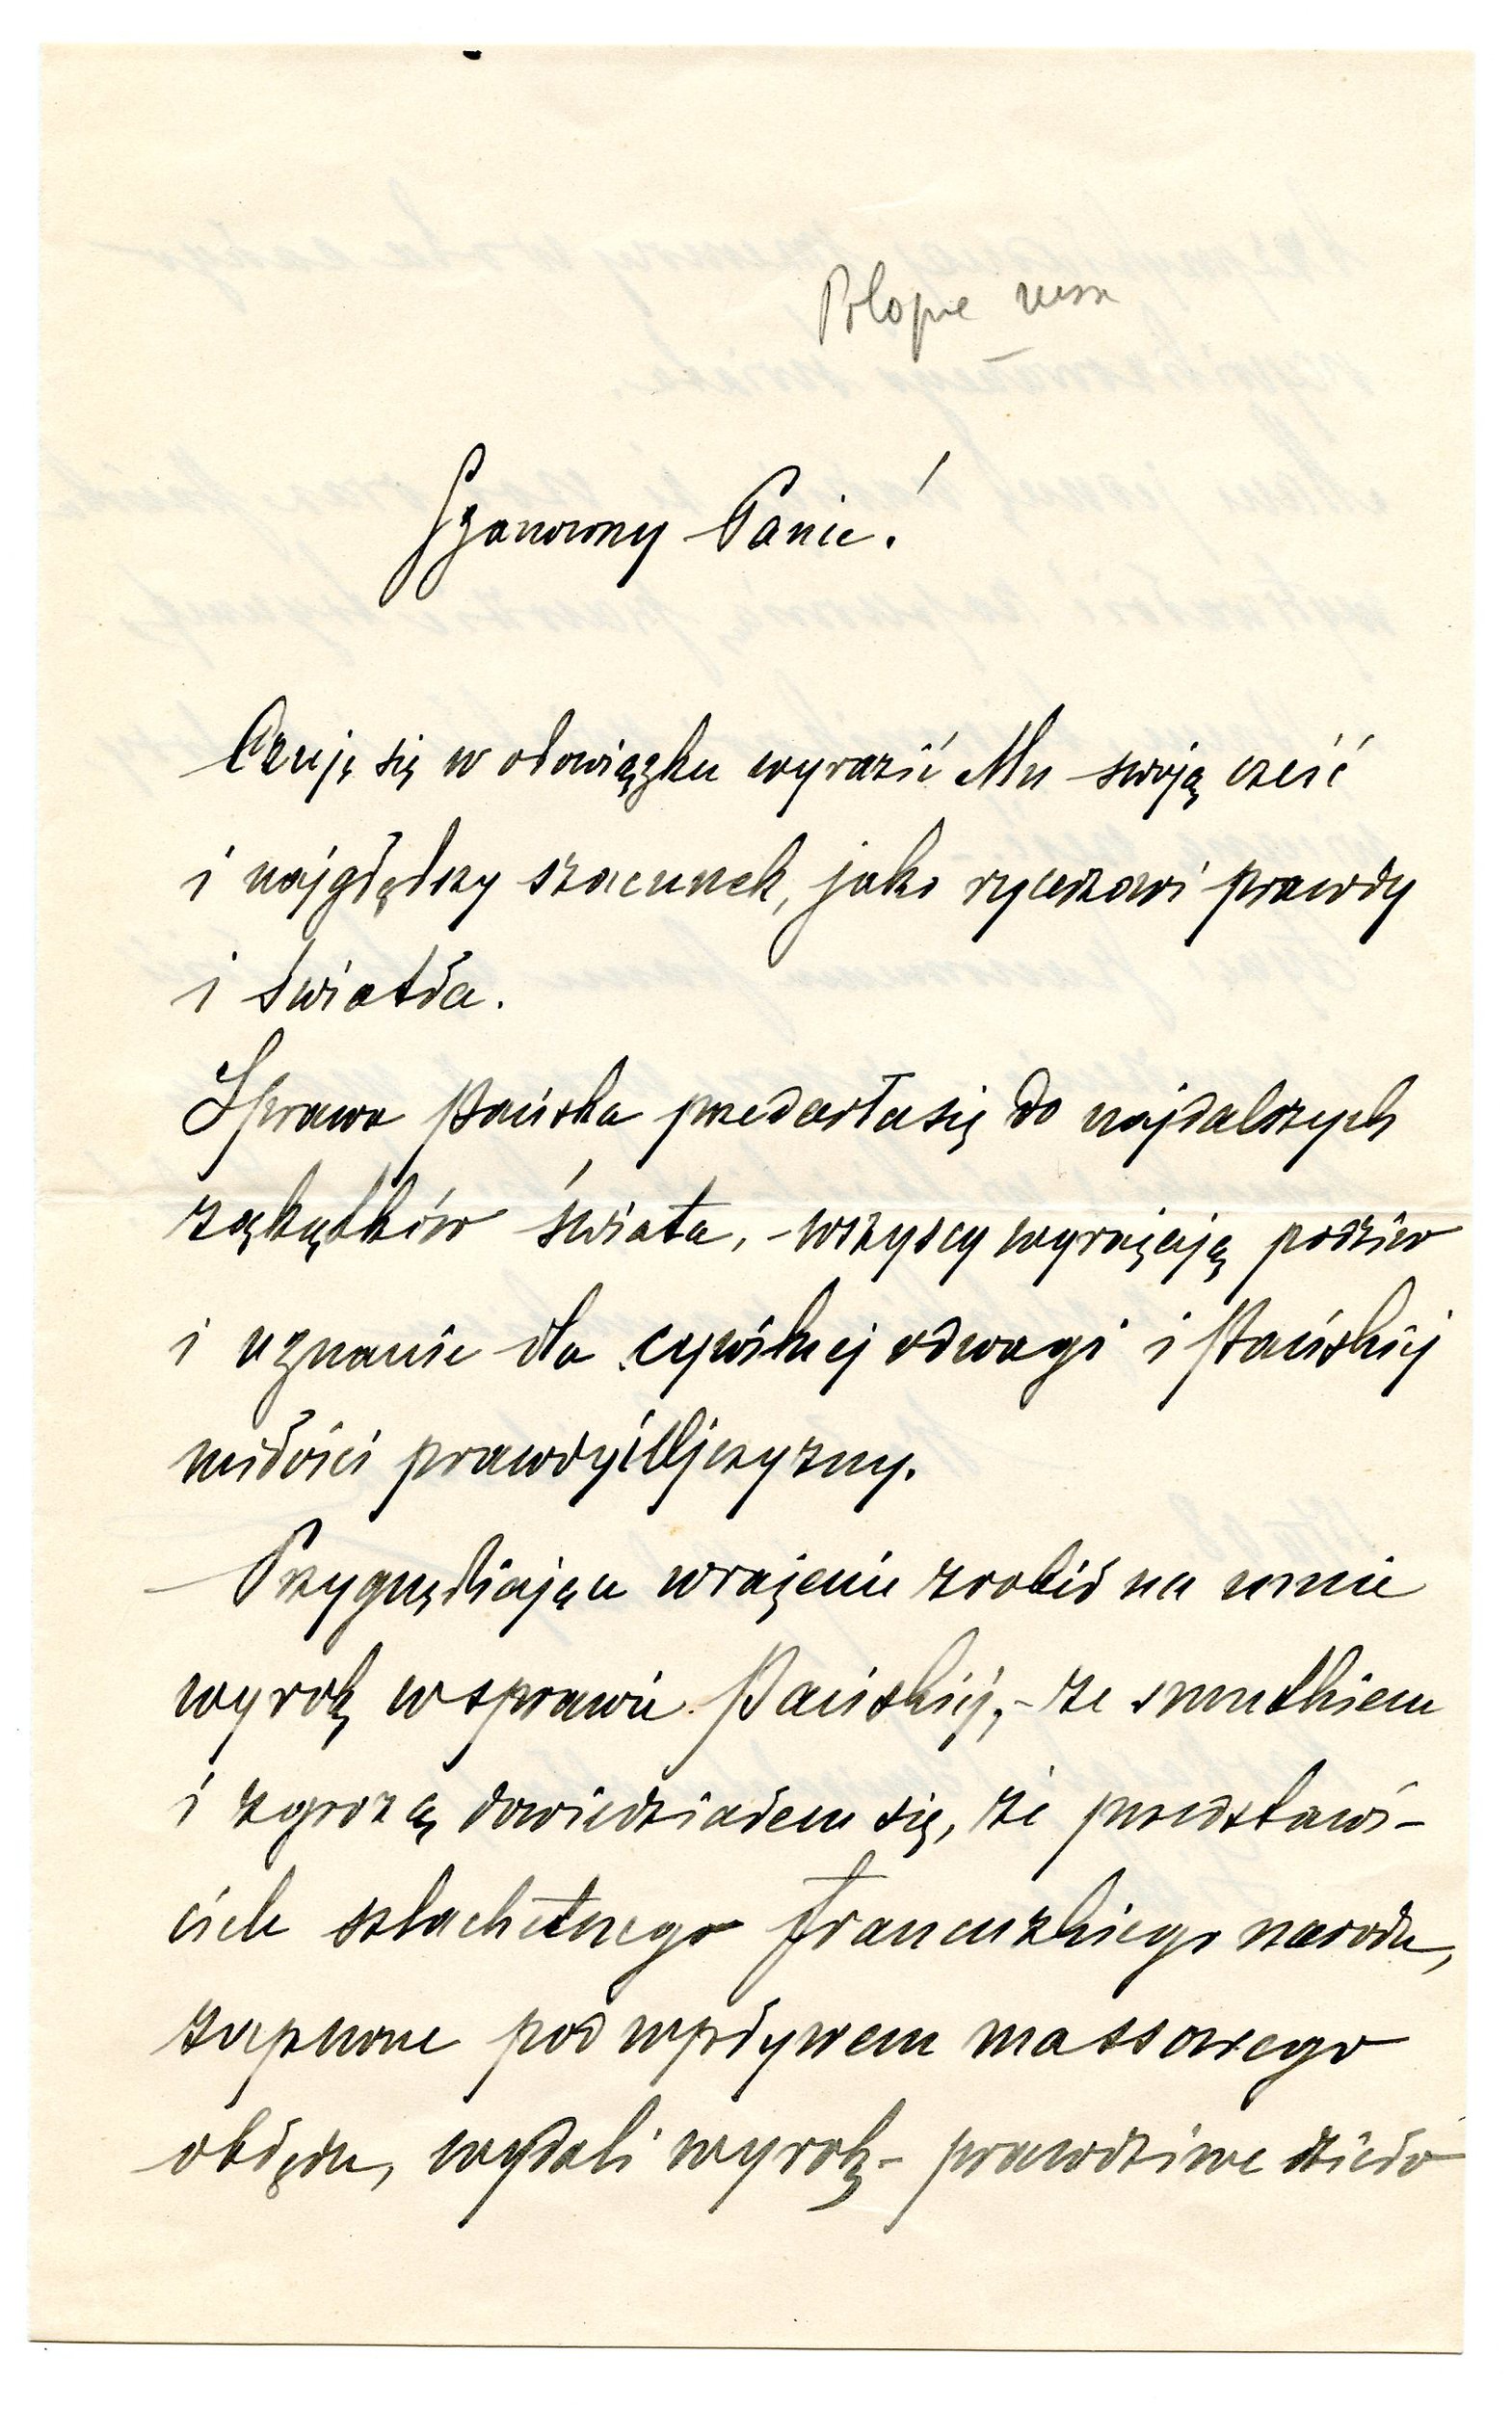 Pologne russe
Szanowny Panie!
Czuję się w obowiązku wyrazić Mu swoją cześć
i najgłębszy szacunek, jako rycerzowi prawdy
i światła.
Sprawa Pańska przedarła się do najdalszych
zakątków świata, - wszyscy wyrażają podziw
i uznanie dla cywilnej odwagi i Pańskiéj
miłości prawdy i Ojczyzny.
Przygnębiające wrażenie zrobił na mnie
wyrok w sprawie Pańskiéj, - ze smutkiem
i zgrozą dowiedziałem się, że przedstawi-
ciele szlachetnego francuzkiego narodu,
zapewne pod wpływem massowego
obłędu, wydali wyrok - prawdziwe dzieło